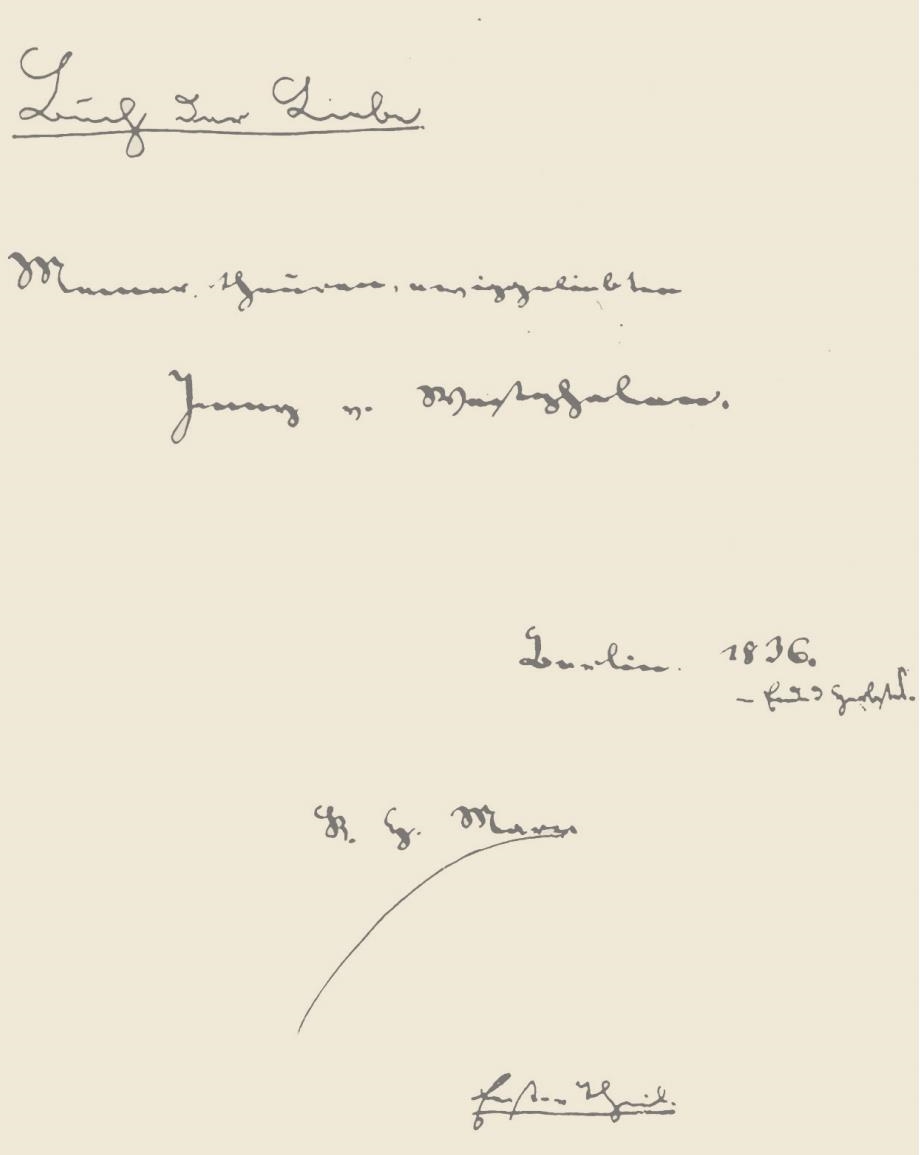 Buch der Liebe
Meiner theuren, ewiggeliebten
Jenny v. Westphalen.
Berlin. 1836.
– Ende Herbstes.
K. H. Marx
Erster Theil.